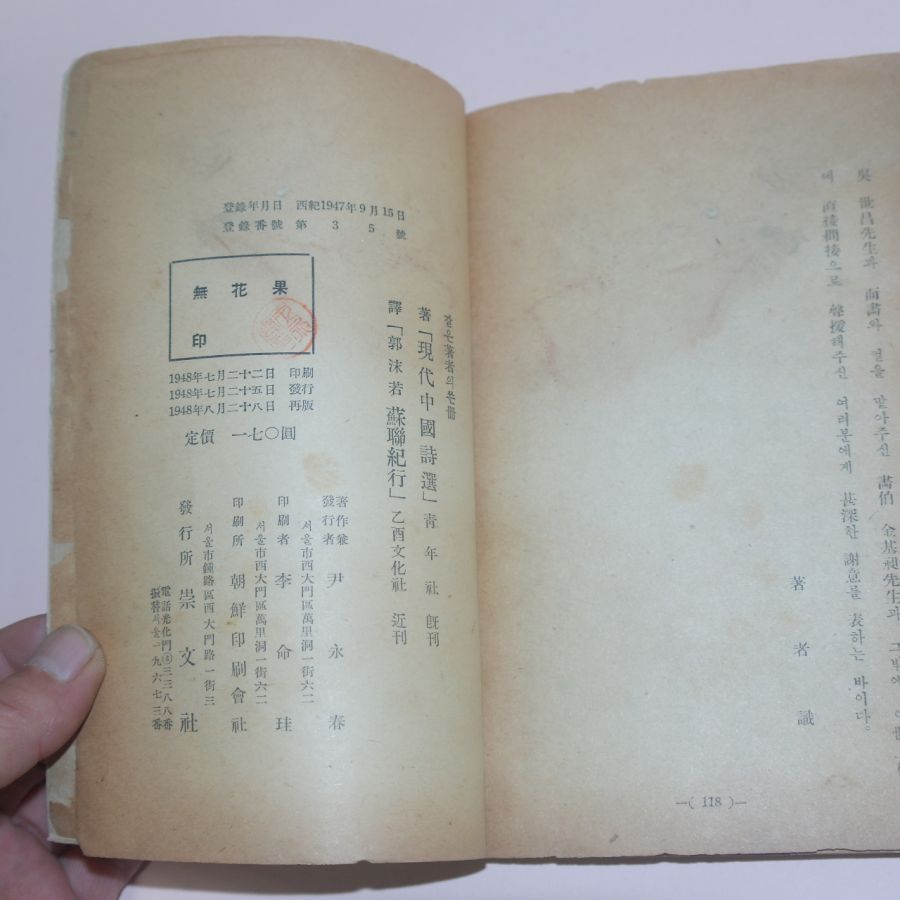 吳 世昌先生과 面畵와 컷을 맡아주신 畵伯 金基昶先生과 그밖에
에 直接間接으로 聲援해주신 여러분에게 甚深한 謝意를 表하는 바이다。
著者識
—( 118 )—
登錄年月日 西紀1947年9月15日
登錄番號 第35號
無花果
印
1948年七月二十二日 印刷
1948年七月二十五日 發行
1948年八月二十八日 再版
定價 一七〇圓
같은著者의 册
著「現代中國詩選」靑年社 旣刊
譯「郭沫若 蘇聯紀行」乙酉文化社 近刊
著作兼發行者 尹永春
서울市西大門區萬里洞一街六二
印刷者 李命珪
서울市西大門區萬里洞一街六二
印刷所 朝鮮印刷會社
서울市鍾路區西大門路一街三
發行所 崇文社
電話光化門④三三八八番
振替서울一九六七三番